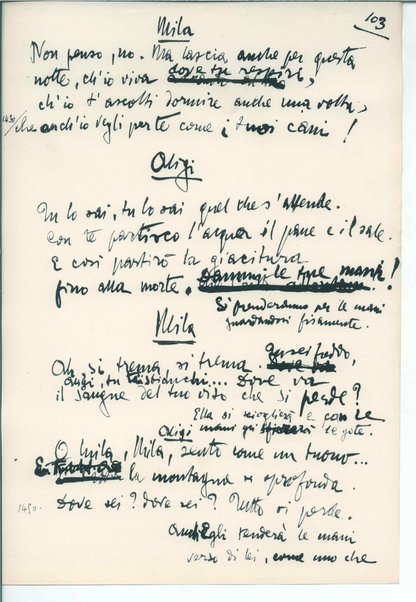 103
Mila
Non penso, no. Ma lascia anche per questa
notte, ch'io viva dove tu respiri,
ch'io t'ascolti dormire anche una volta,
1430/ che anch'io vegli per te come i tuoi cani!
Aligi
Tu lo sai, tu lo sai quel che s'attende.
Con te partisco l'acqua il pane e il sale.
E così partirò la giacitura
fino alla morte. Dammi le tue mani!
Si prenderanno per le mani
guardandosi fisamente.
Mila
Ah, si trema, si trema. Quasi freddo,
Aligi, tu ti sbianchi... Dove va
il sangue del tuo viso che si perde?
Ella si scioglierà e con le
mani gli sfiorerà le gote.
Aligi
O Mila, Mila, sento come un tuono...
la montagna si sprofonda.
Dove sei? dove sei? Tutto si perde.
1490.
Egli tenderà le mani
verso di lei, come uno che